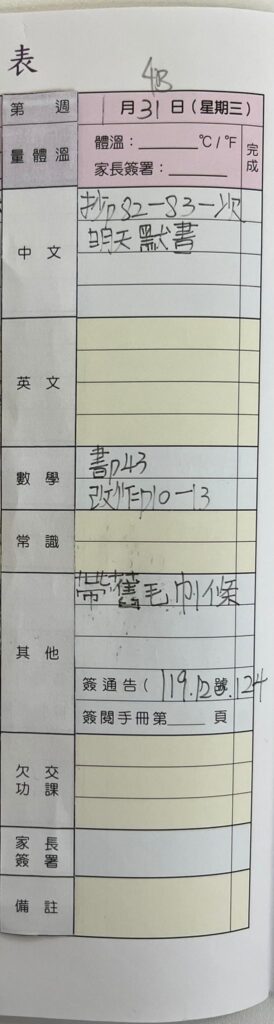 表
4B
第 週 月31日(星期三)
量體溫 體溫:______°C/°F 完成
家長簽署:______
中文 抄P82-83一次
明天默書
英文
數學 書P43
改作P10-13
常識
其他 帶舊毛巾1條
簽通告( 119.122號.124
簽閱手冊第____頁
欠交功課
家長簽署
備註